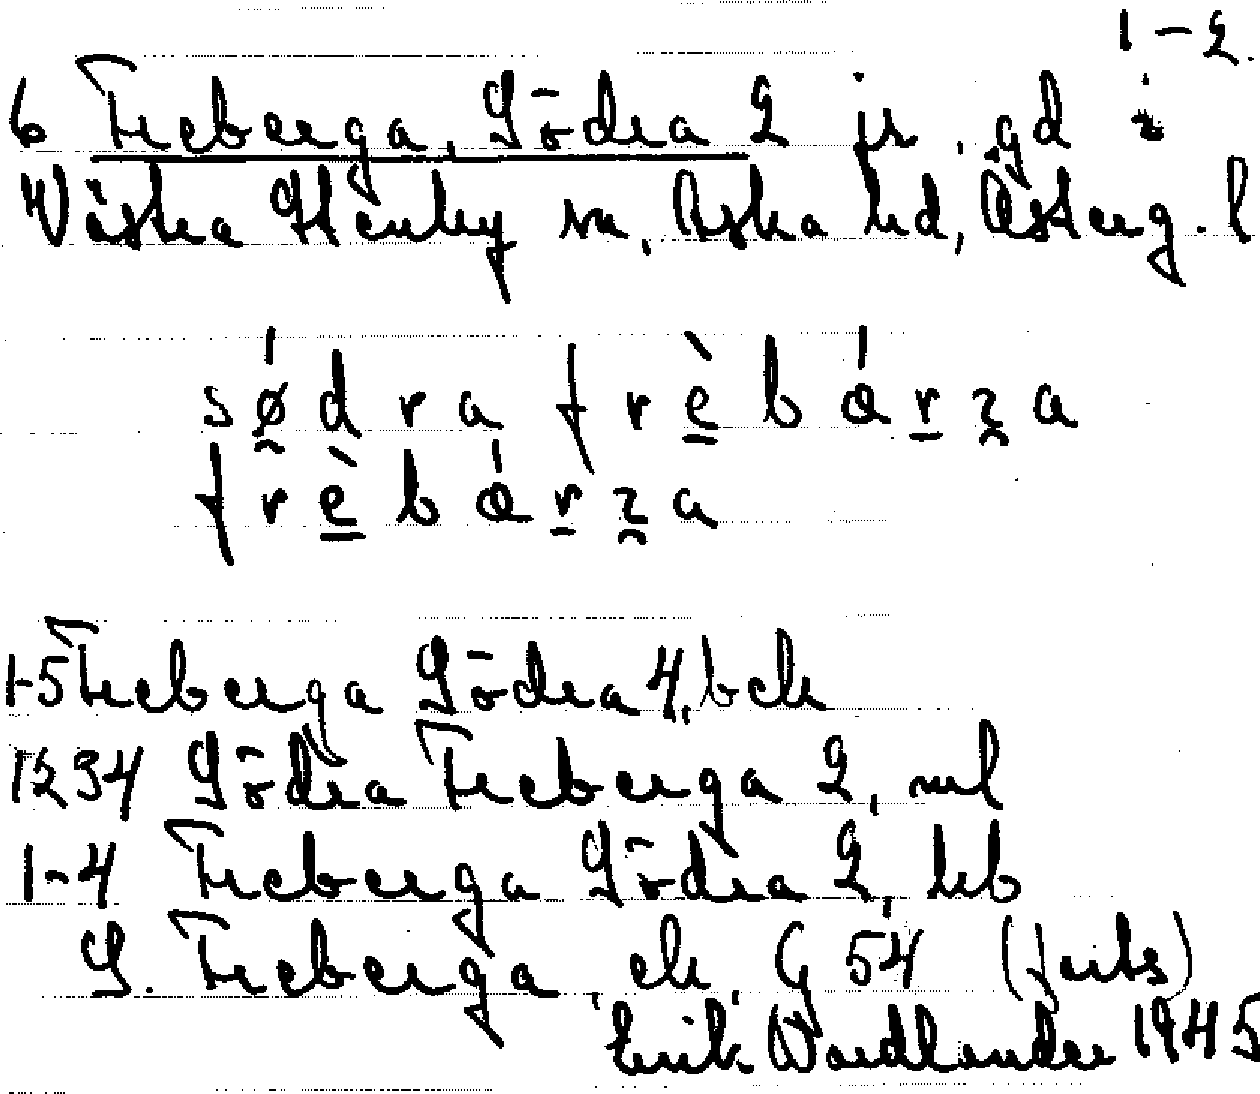 1-2.
6 Freberga, Södra 2 jr, gd i
Västra Stenby sn, Aska hd, Österg. l
sø̀dra frèbárʒa
frèbárʒa
1-5 Freberga Södra 4, bck
1234 Södra Freberga 2, ml
1-4 Freberga Södra 2, hb
S. Freberga, ek, G 54 (jrbs)
Erik Wardlander 1945